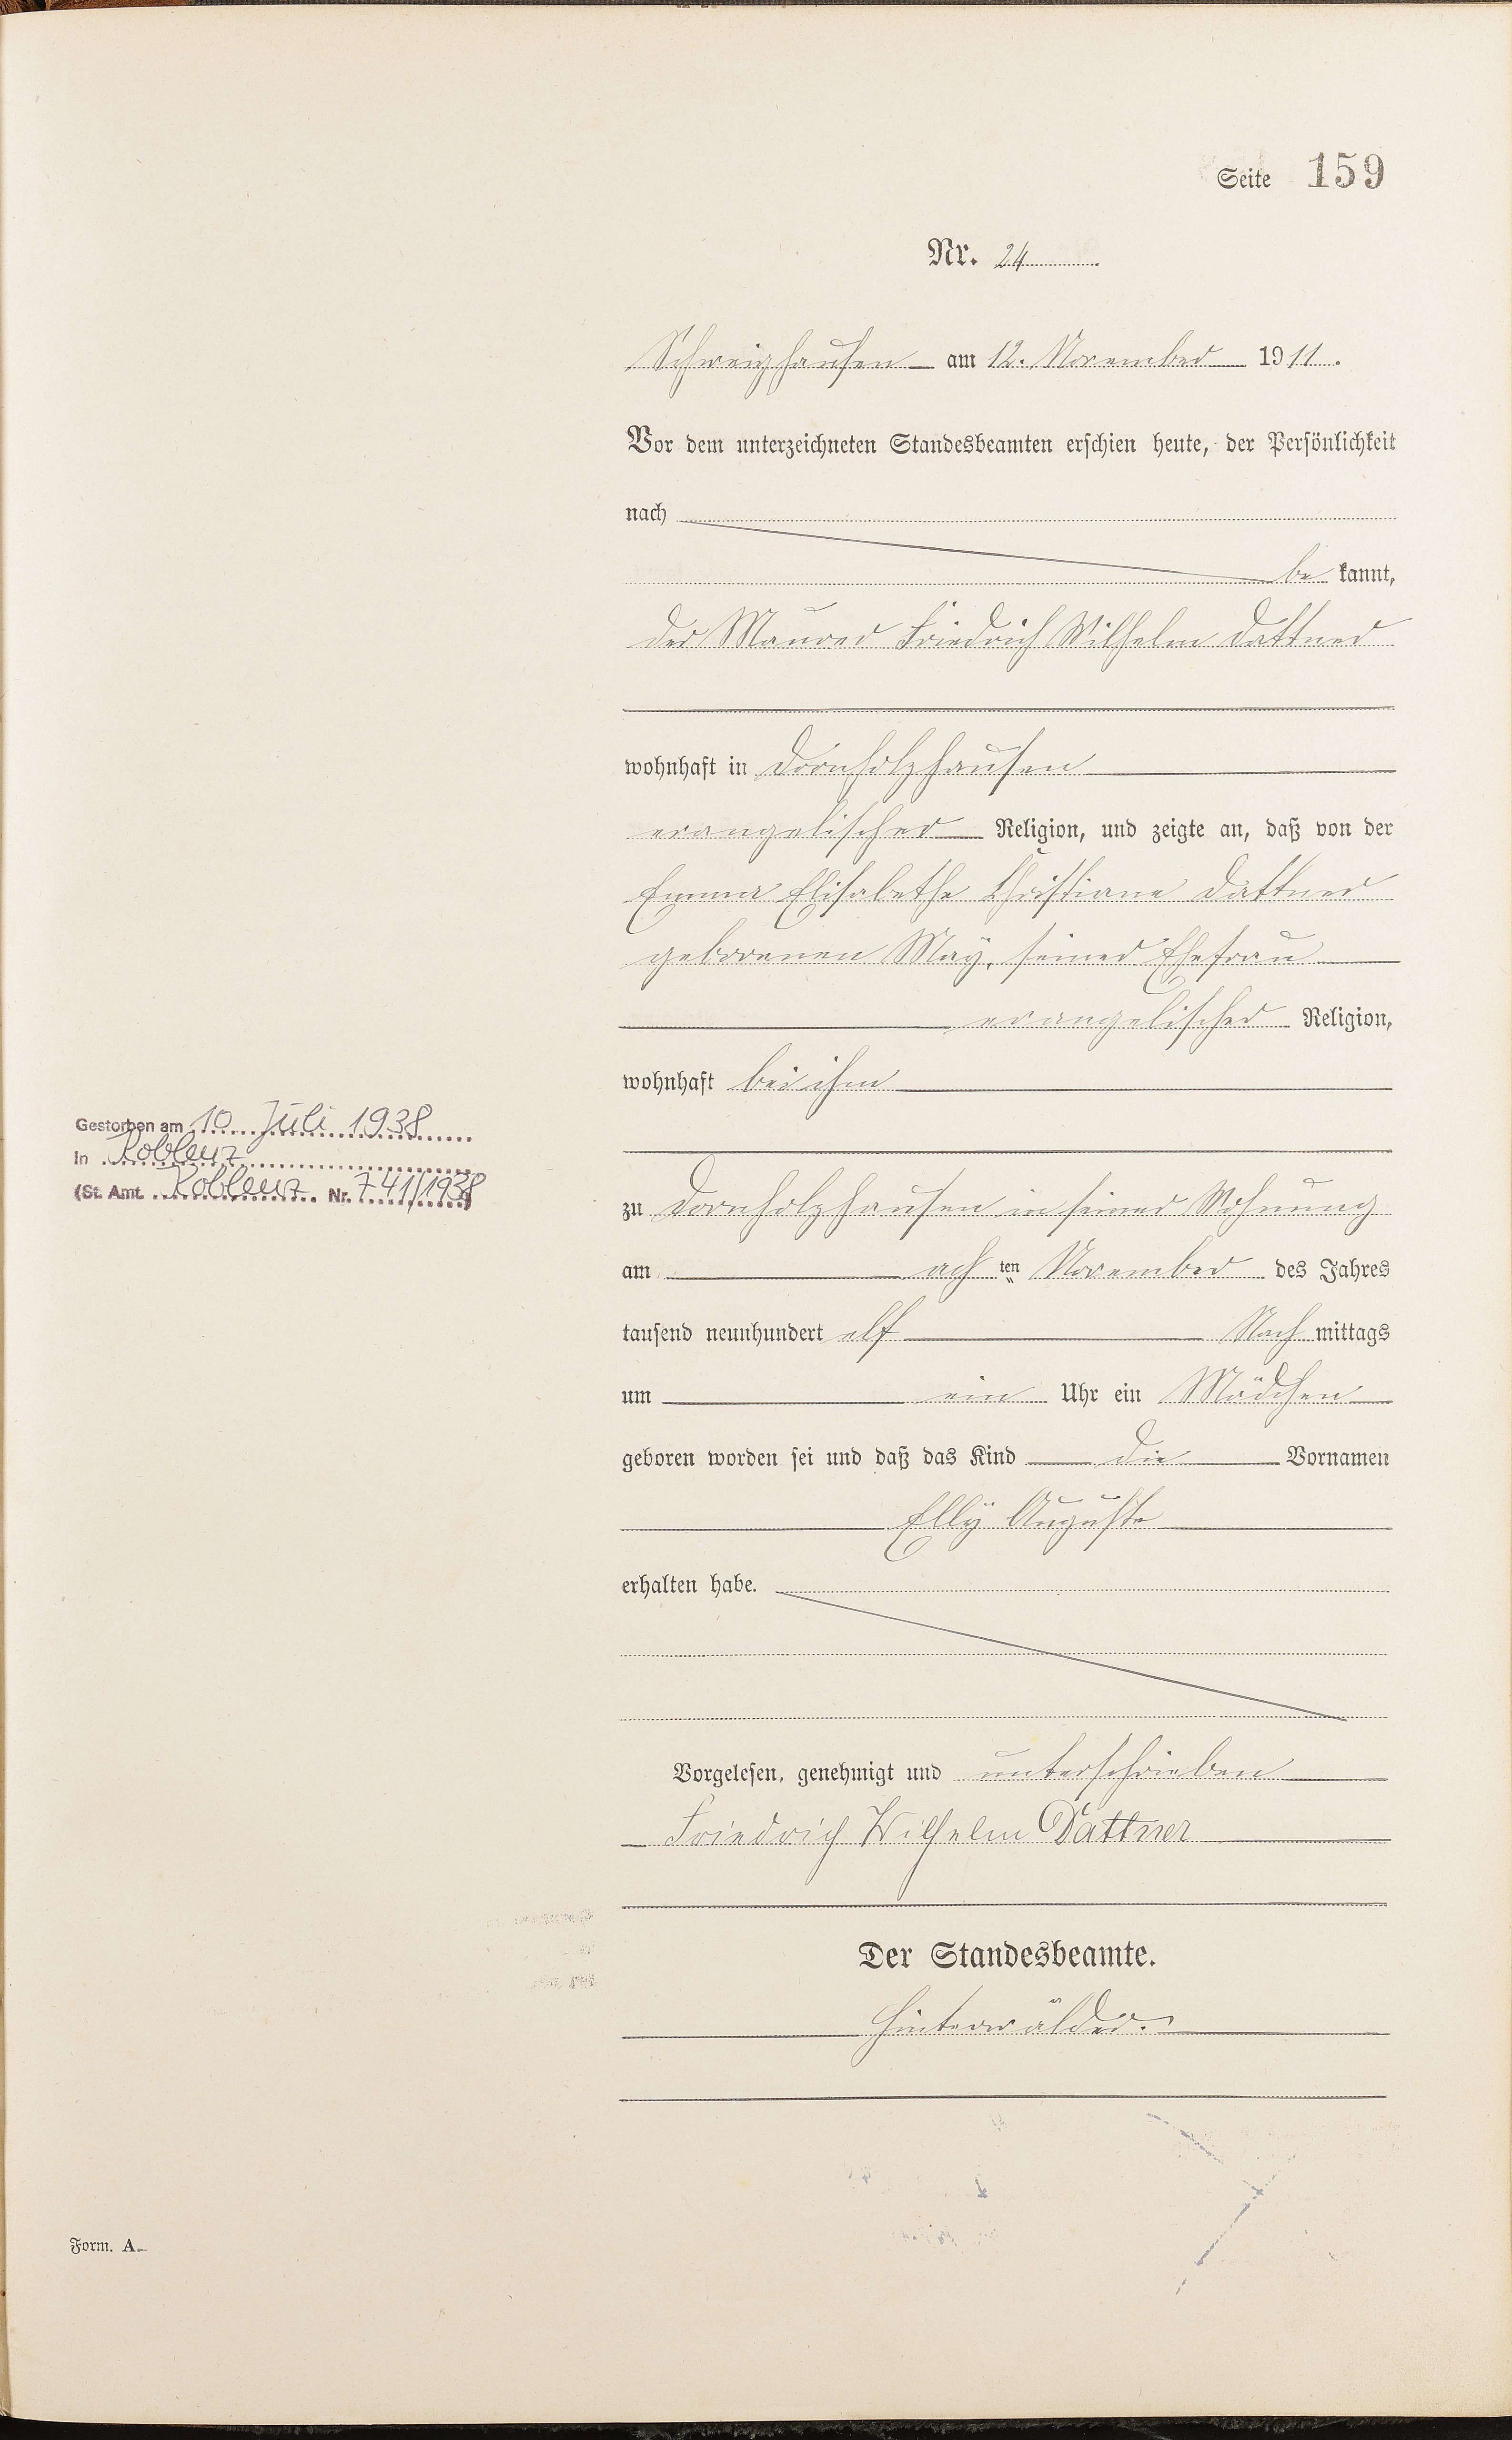 Seite 159
Nr. 24
Schweighausen am 12. November 1911.
Vor dem unterzeichneten Standesbeamten erschien heute, der Persönlichkeit
nach
be kannt,
der Maurer Friedrich Wilhelm Dattner
wohnhaft in Dornholzhausen
evangelischer Religion, und zeigte an, daß von der
Emma Elisabethe Christiane Dattner
geborenen May, seiner Ehefrau
evangelischer Religion,
wohnhaft bei ihm
Gestorben am 10. Juli 1938
in Koblenz
(St. Amt. Koblenz Nr. 741/1938)
zu Dornholzhausen in seiner Wohnung
am ach ten November des Jahres
tausend neunhundert elf Nach mittags
um ein Uhr ein Mädchen
geboren worden sei und daß das Kind die Vornamen
Elly Auguste
erhalten habe.
Vorgelesen, genehmigt und unterschrieben
Friedrich Wilhelm Dattner
Der Standesbeamte.
Hinterwälder.
Form. A.